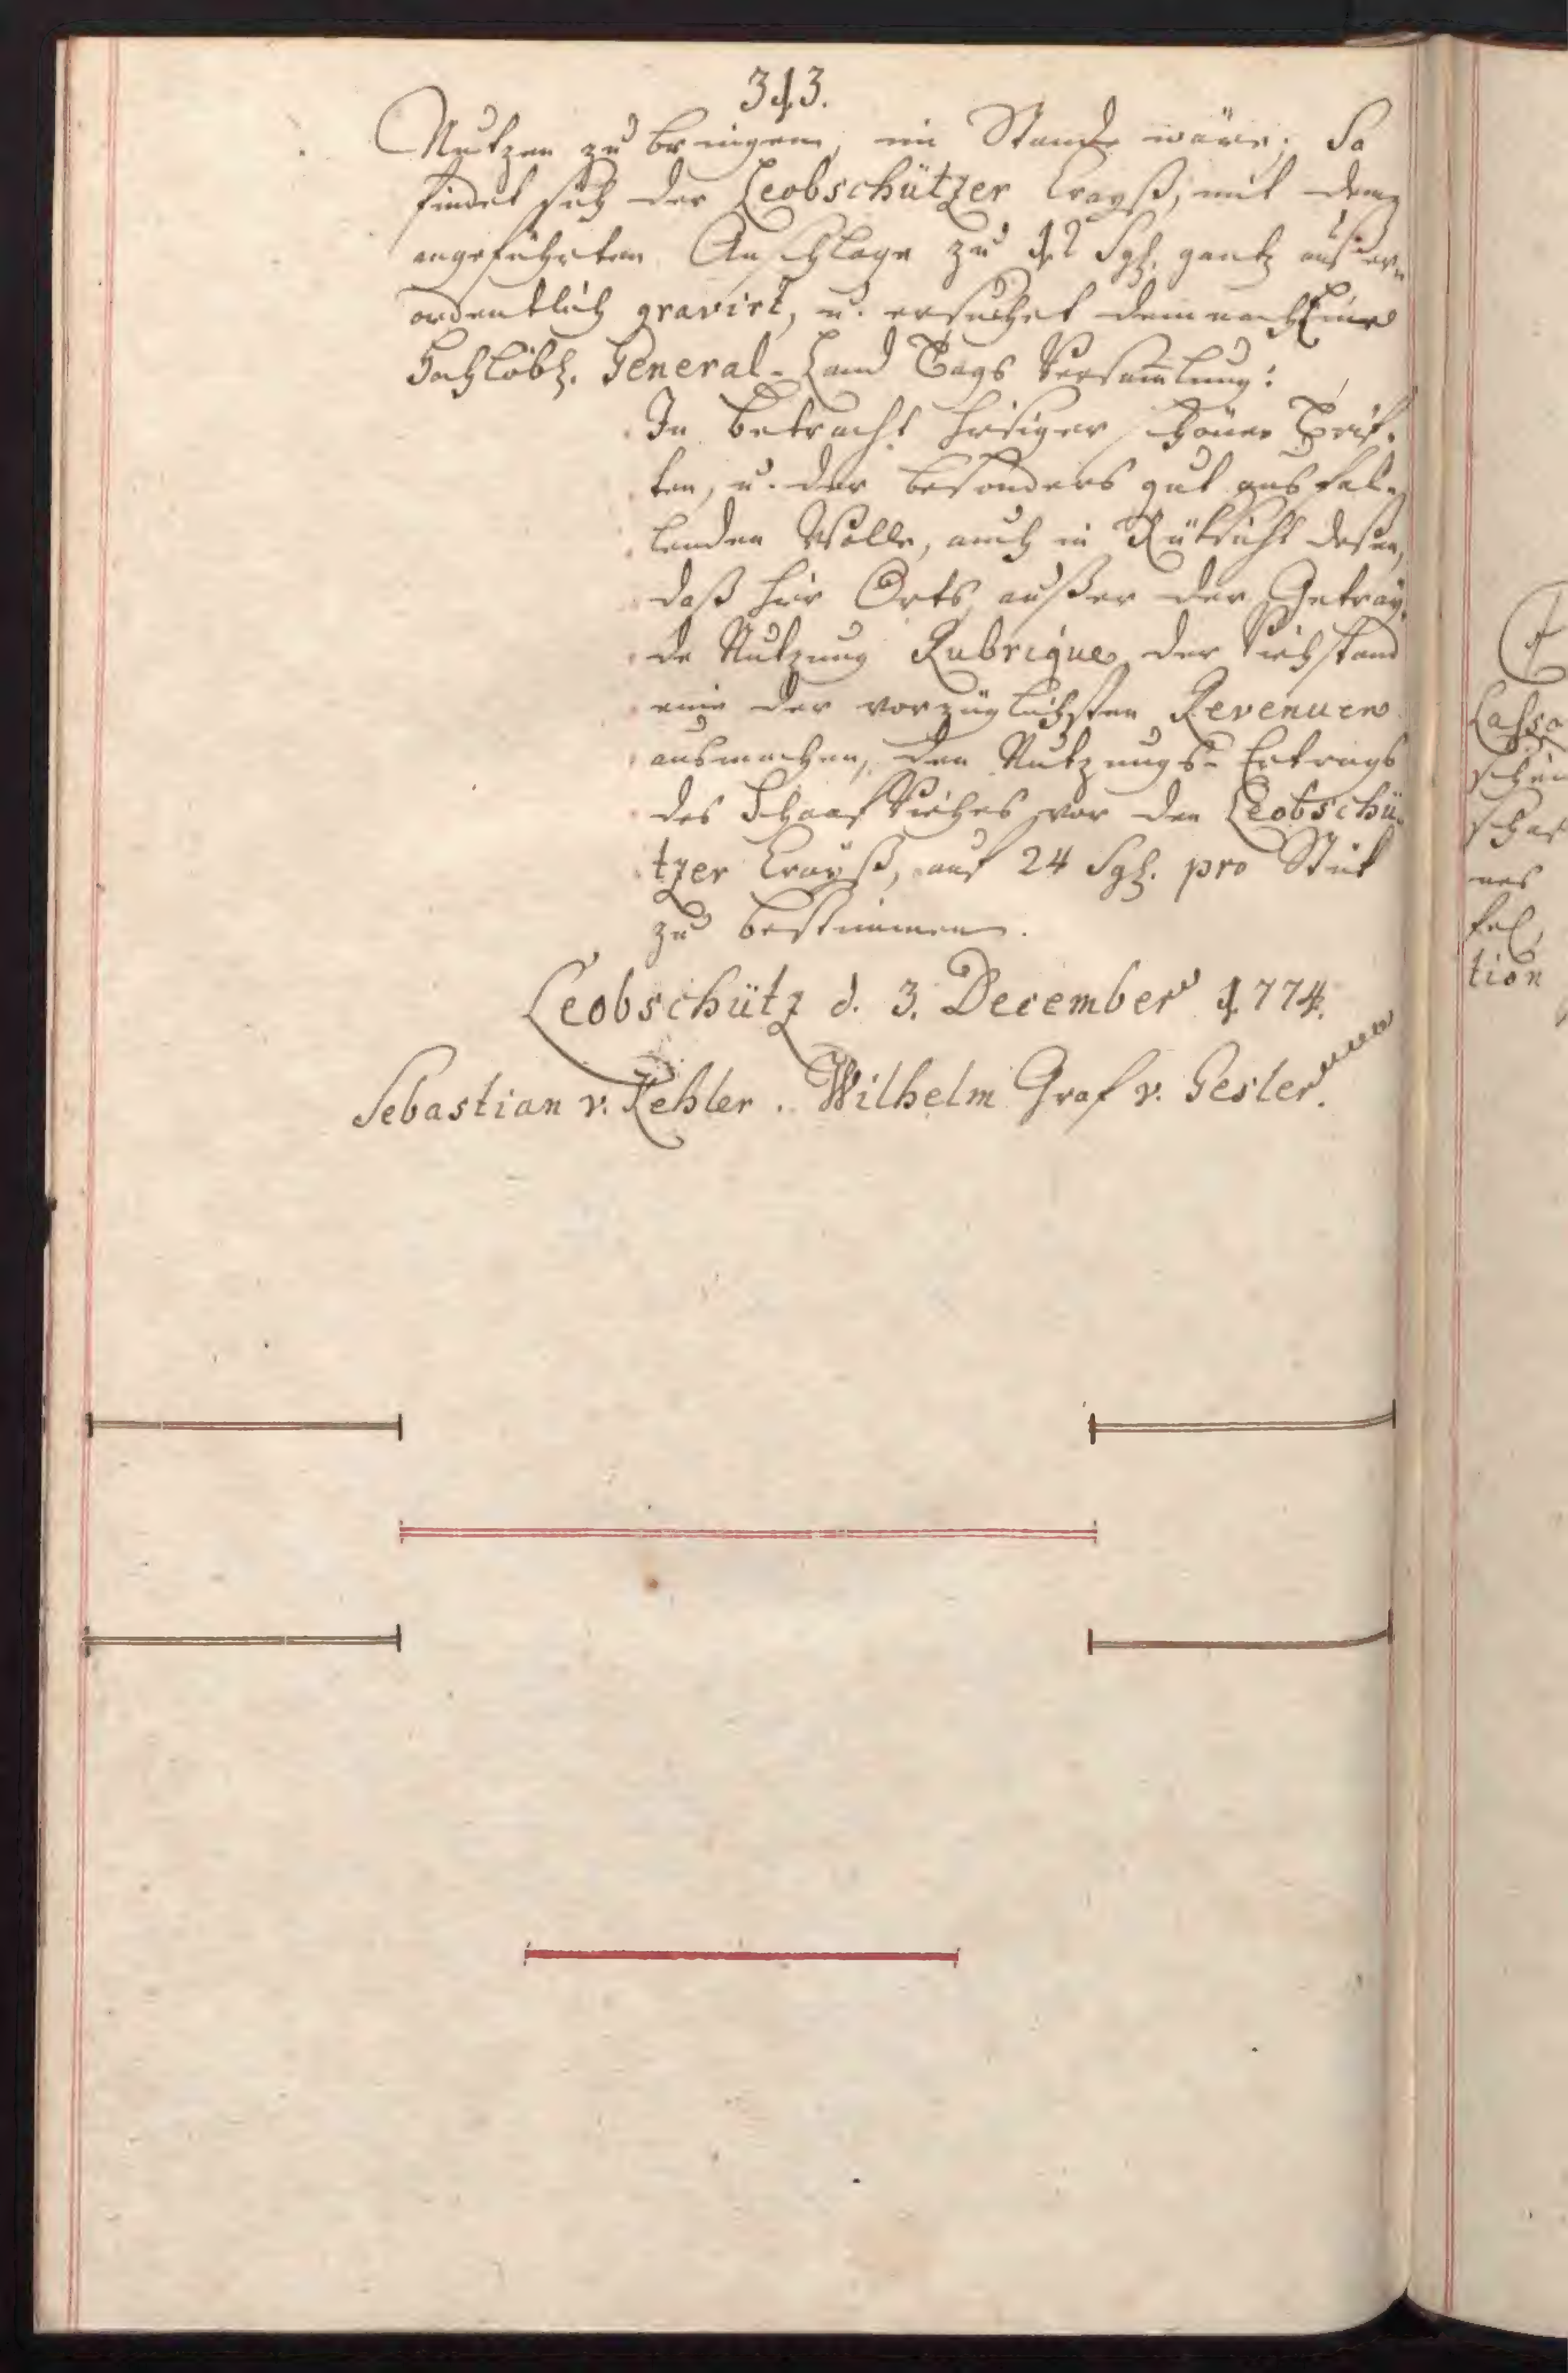 313.
Nutzen zu bringen, im Stande wäre; So
findet sich der Leobschützer Crayß, mit dem
angeführten Anschlage zu 12 Sgl. gantz außer-
ordentlich gravirt, u. ersuchet demnach Eine
Hochlöbl. General-Land Tags Versam̅lung:
In betracht hisiger schöner Trif-
ten, u. der besonders gut ausfal-
lenden Wolle, auch in Rüksicht deßen,
daß hir Orts, außer der Getray-
de Nutzung Rubrique, der Viehstand
eine der vorzüglichsten Revenuen
ausmachen, den Nutzungs-Ertrags
des Schaaf Viehes vor den Leobschü-
tzer Crayß, auf 24 Sgl. pro Stük
zu bestimmen.
Leobschütz d. 3. December 1774.
Sebastian v. Kehler. Wilhelm Graf v. Gesler.
Casso
schei
schaf
nes
fel,
tion